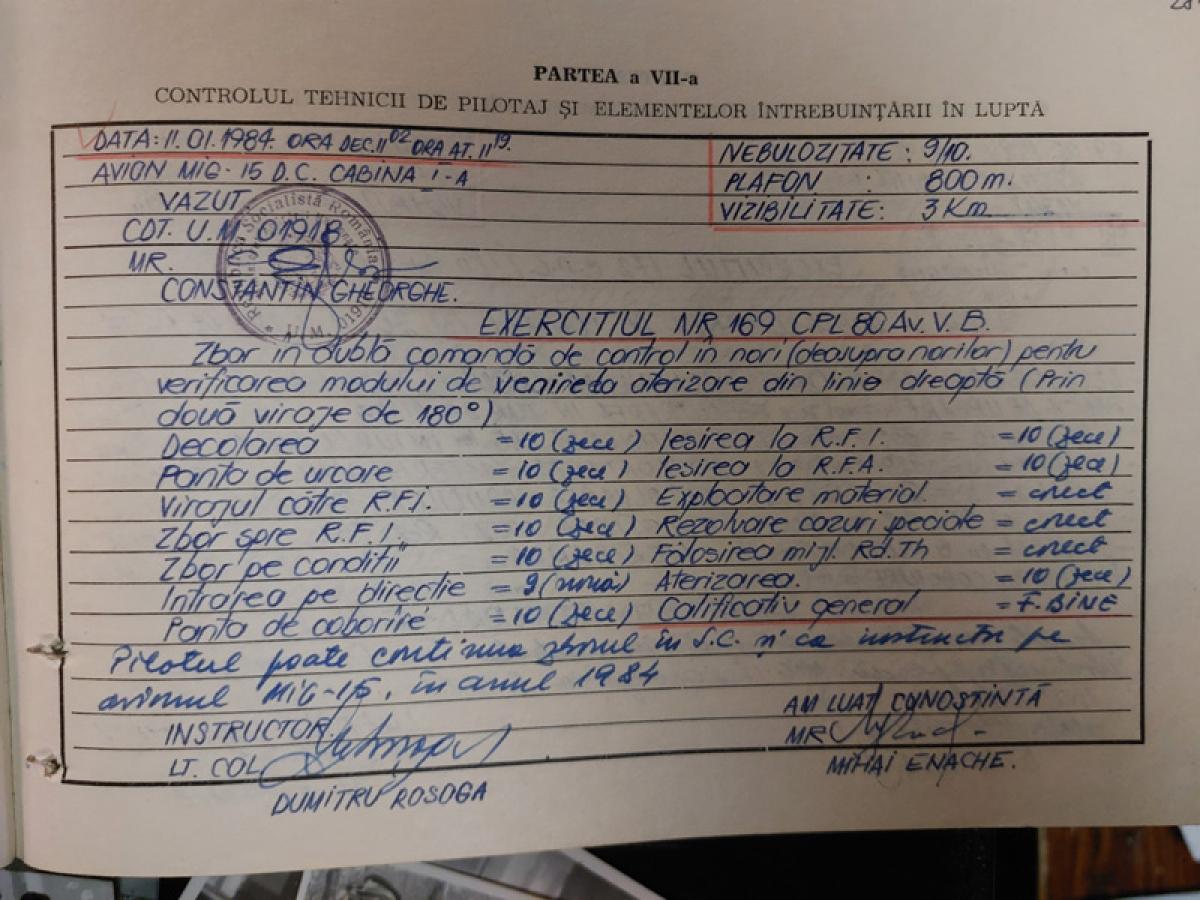 PARTEA a VII-a
CONTROLUL TEHNICII DE PILOTAJ ȘI ELEMENTELOR ÎNTREBUINȚĂRII ÎN LUPTĂ
DATA: 11.01.1984. ORA DEC. 11 02 ORA AT. 11 19.
NEBULOZITATE : 9/10.
AVION MIG-15 D.C. CABINA I-A
PLAFON : 800 m.
VAZUT
VIZIBILITATE: 3 Km
CDT. U.M. 01918
MR.
CONSTANTIN GHEORGHE.
Socialistă România
U.M. 0191
EXERCITIUL NR 169 CPL 80 Av. V. B.
Zbor in dublă comandă de control in nori (deasupra norilor) pentru
verificarea modului de venire la aterizare din linie dreaptă (Prin
două viraje de 180°)
Decolarea = 10 (zece) Iesirea la R.F.I. = 10 (zece)
Panta de urcare = 10 (zece) Iesirea la R.F.A. = 10 (zece)
Virajul către R.F.I. = 10 (zece) Exploatare material = corect
Zbor spre R.F.I. = 10 (zece) Rezolvare cazuri speciale = corect
Zbor pe conditii = 10 (zece) Folosirea mijl. Rd. Th = corect
Intrarea pe directie = 9 (nouă) Aterizarea. = 10 (zece)
Panta de coborire = 10 (zece) Calificativ general = F. BINE
Pilotul poate continua zborul în S.C. și ca instructor pe
avionul MIG-15, în anul 1984
INSTRUCTOR
AM LUAT CUNOSTINTĂ
LT. COL
MR
DUMITRU ROSOGA
MIHAI ENACHE.